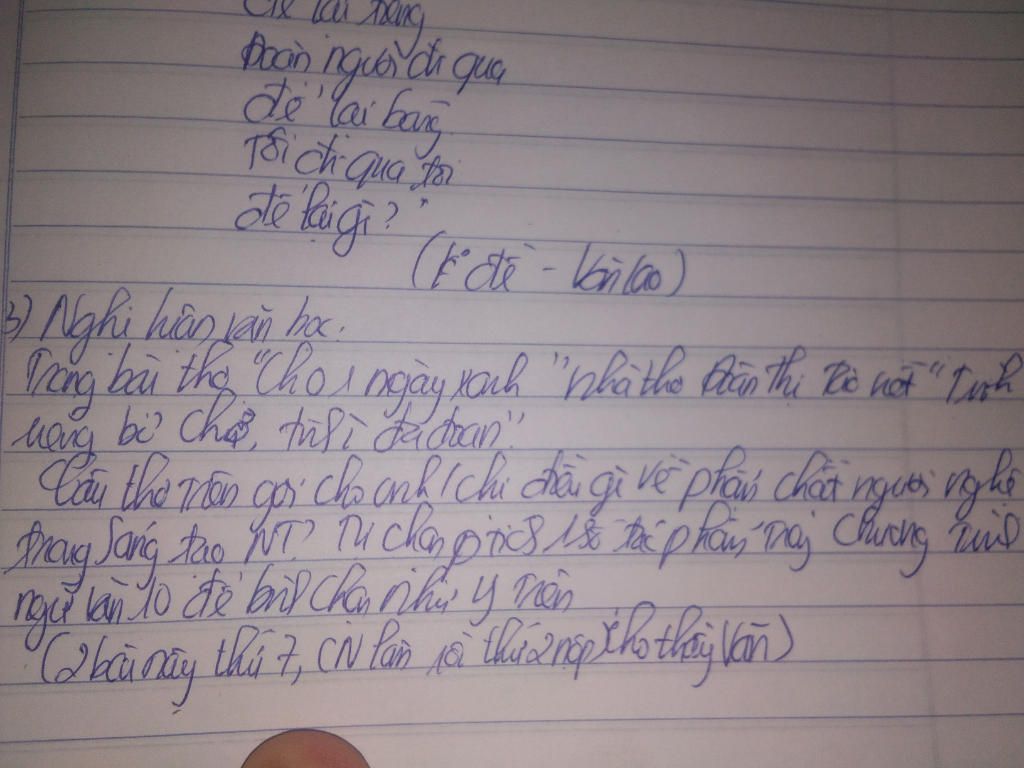 để lại nắng
Đoàn người đi qua
để lại bóng
Tôi đi qua tôi
để lại gì?"
(K° đề - Văn Cao)
3) Nghị luận văn học.
Trong bài thơ "Cho 1 ngày xanh" nhà thơ Đoàn Thị
mang bỏ chợ, đa đoan".
Câu thơ trên gợi cho anh/chị điều gì về phẩm chất người nghệ
trong sáng tạo NT? Tự chọn p tích 1 số tác phẩm trog chương trình
ngữ văn 10 để bình chọn như ý trên
(2 bài này thứ 7, CN làm rồi thứ 2 nộp cho thầy Văn)